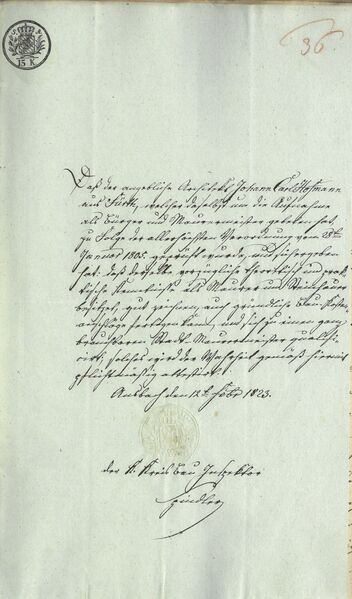 15 K
36.
Daß der angebliche Architekt Johann Carl Hofmann
aus Fürth, welcher daselbst um die Aufnahme
als Bürger und Maurermeister gebeten hat,
zu Folge der allerhöchsten Verordnung vom
Januar 1805. geprüft wurde, und sich ergeben
hat: daß derselbe vorzügliche theoretisch und prak-
tische Kenntniße als Maurer und Steinhauer
besitzet, gut zeichnen, auch gründliche Bau-Kosten-
anschläge fertigen kann, und sich zu einen ganz
brauchbaren Stadt-Maurermeister qualifi-
cirt; solches wird der Wahrheit gemäß hiermit
pflichtmäßig attestirt.
Ansbach den 12t. Febr 1823.
der K. Kreis Bau Inspektor
Spindler